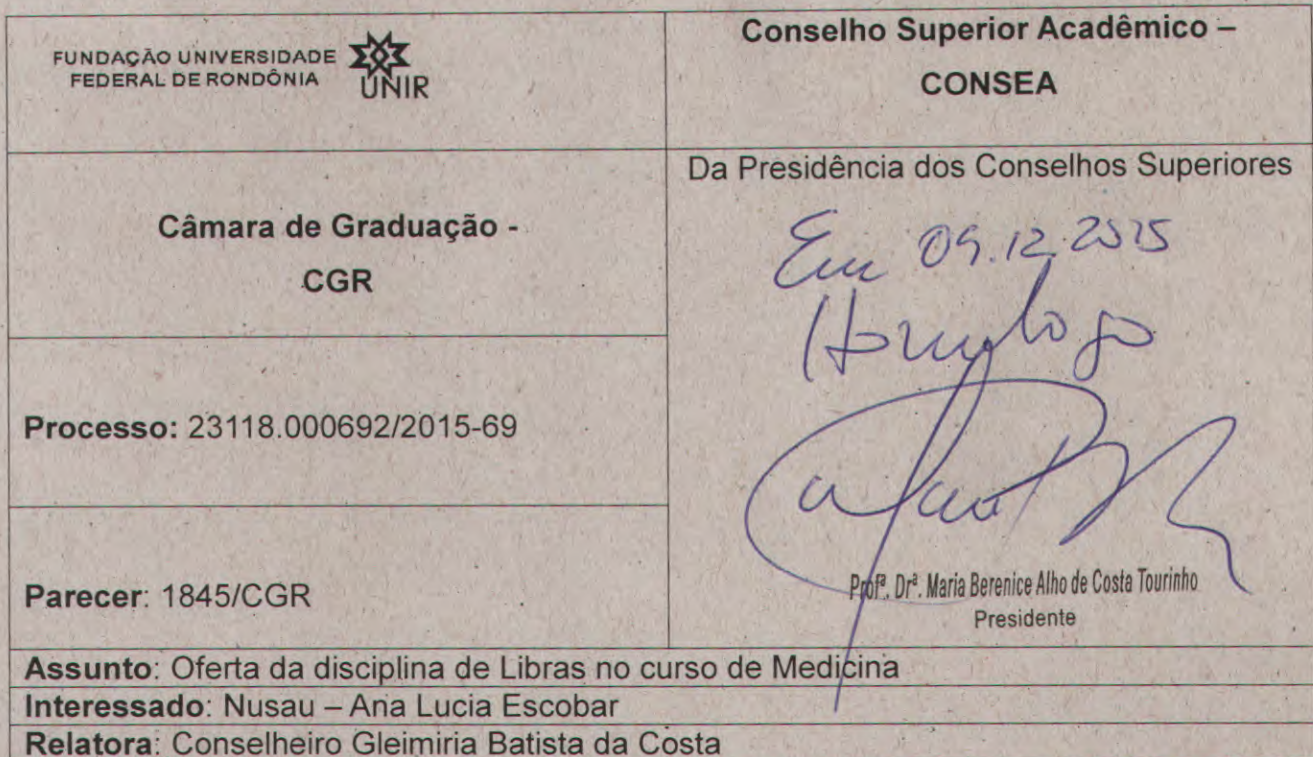 FUNDAÇÃO UNIVERSIDADE
FEDERAL DE RONDÔNIA
UNIR
Conselho Superior Acadêmico –
CONSEA
Câmara de Graduação -
CGR
Processo: 23118.000692/2015-69
Parecer: 1845/CGR
Da Presidência dos Conselhos Superiores
Em 09.12.2015
Homologo
Profª. Drª. Maria Berenice Alho de Costa Tourinho
Presidente
Assunto: Oferta da disciplina de Libras no curso de Medicina
Interessado: Nusau – Ana Lucia Escobar
Relatora: Conselheiro Gleimiria Batista da Costa